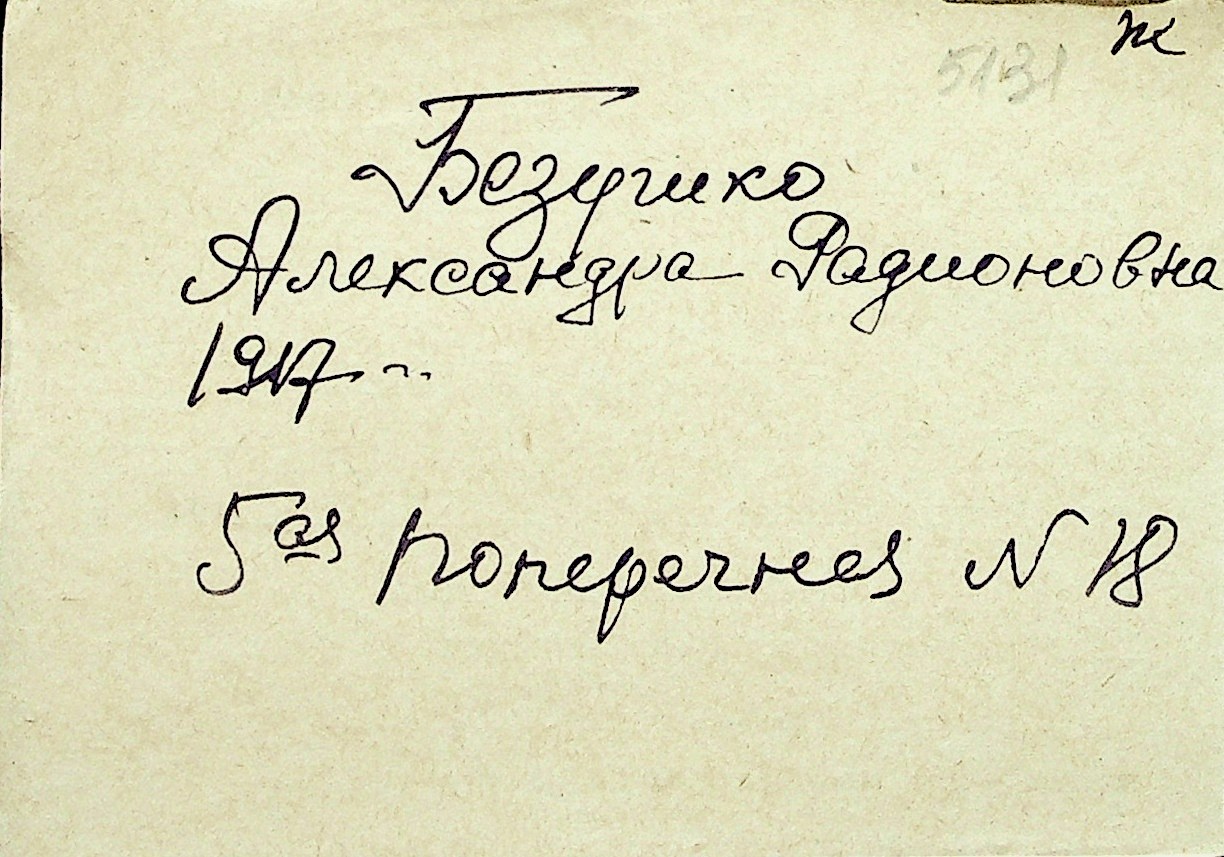 ж
5131
Безушко
Александра Радионовна
1917
5ая поперечная N 18